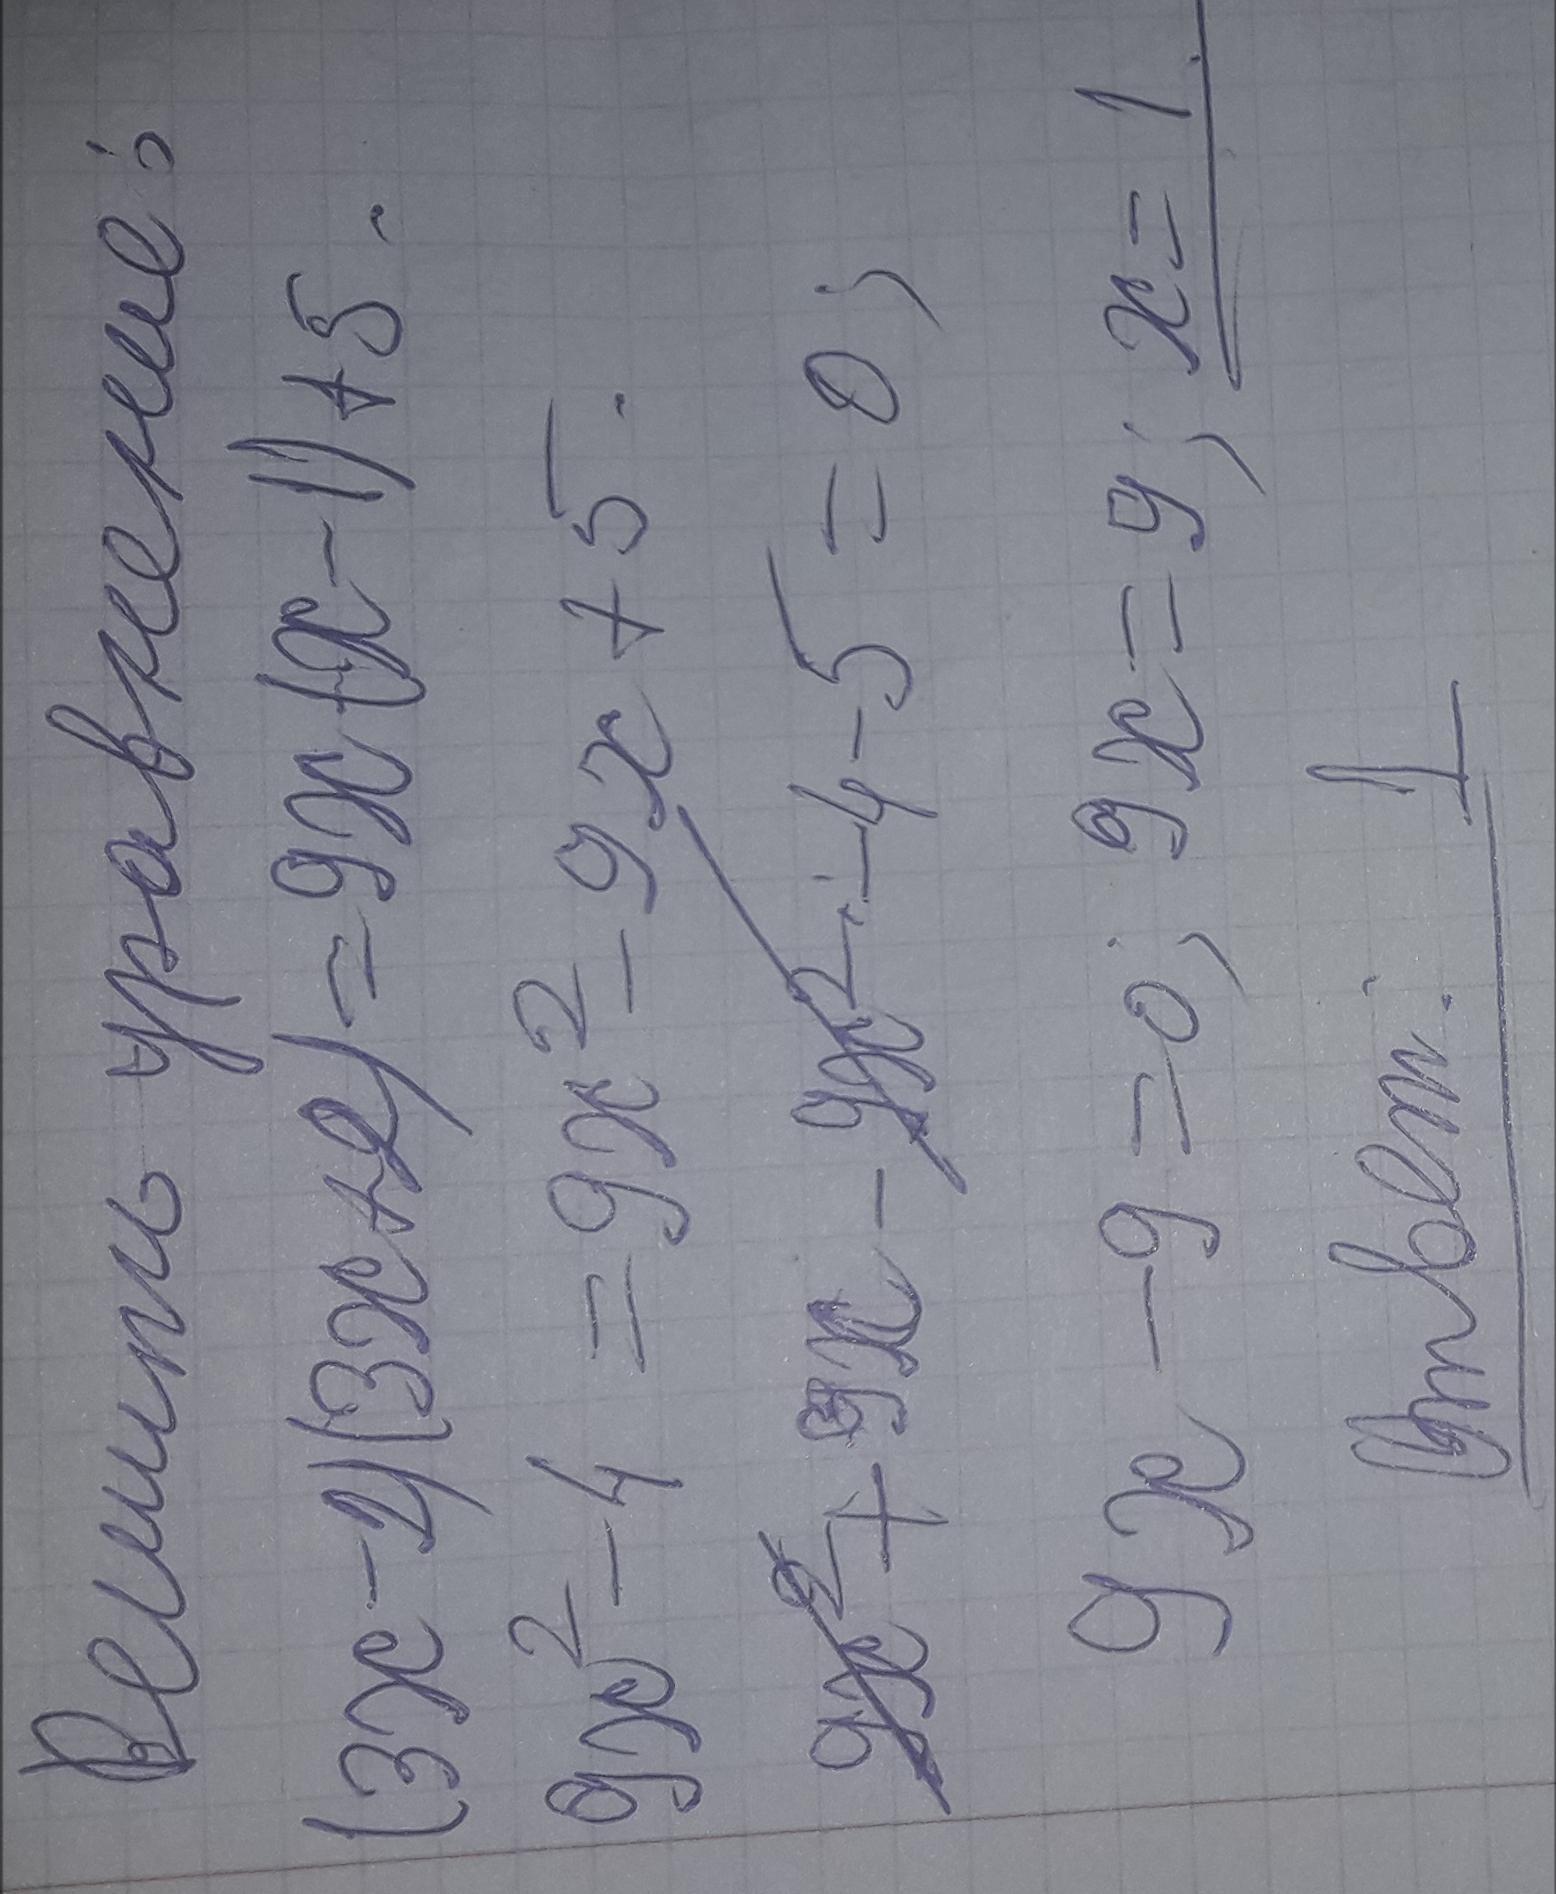 Решить уравнение:
(3x-2)(3x+2)=9x(x-1)+5.
9x²-4 =9x²-9x+5.
9x²+9x-9x²-4-5=0;
9x-9=0; 9x=9; x=1.
Ответ: 1